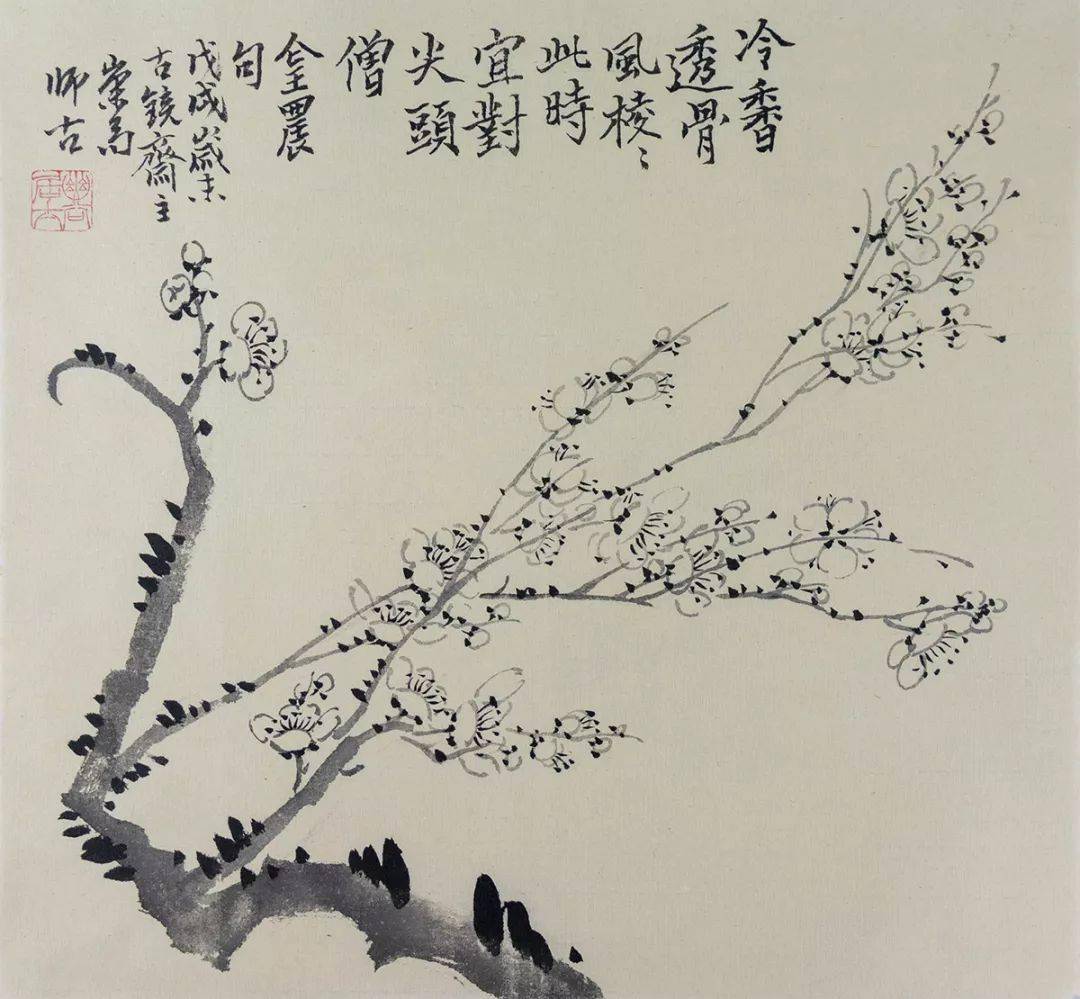 冷香
透骨
風棱〻
此時
宜對
尖頭
僧
金農
句
戊戌歲末
古鏡齋主
崇寫
師古